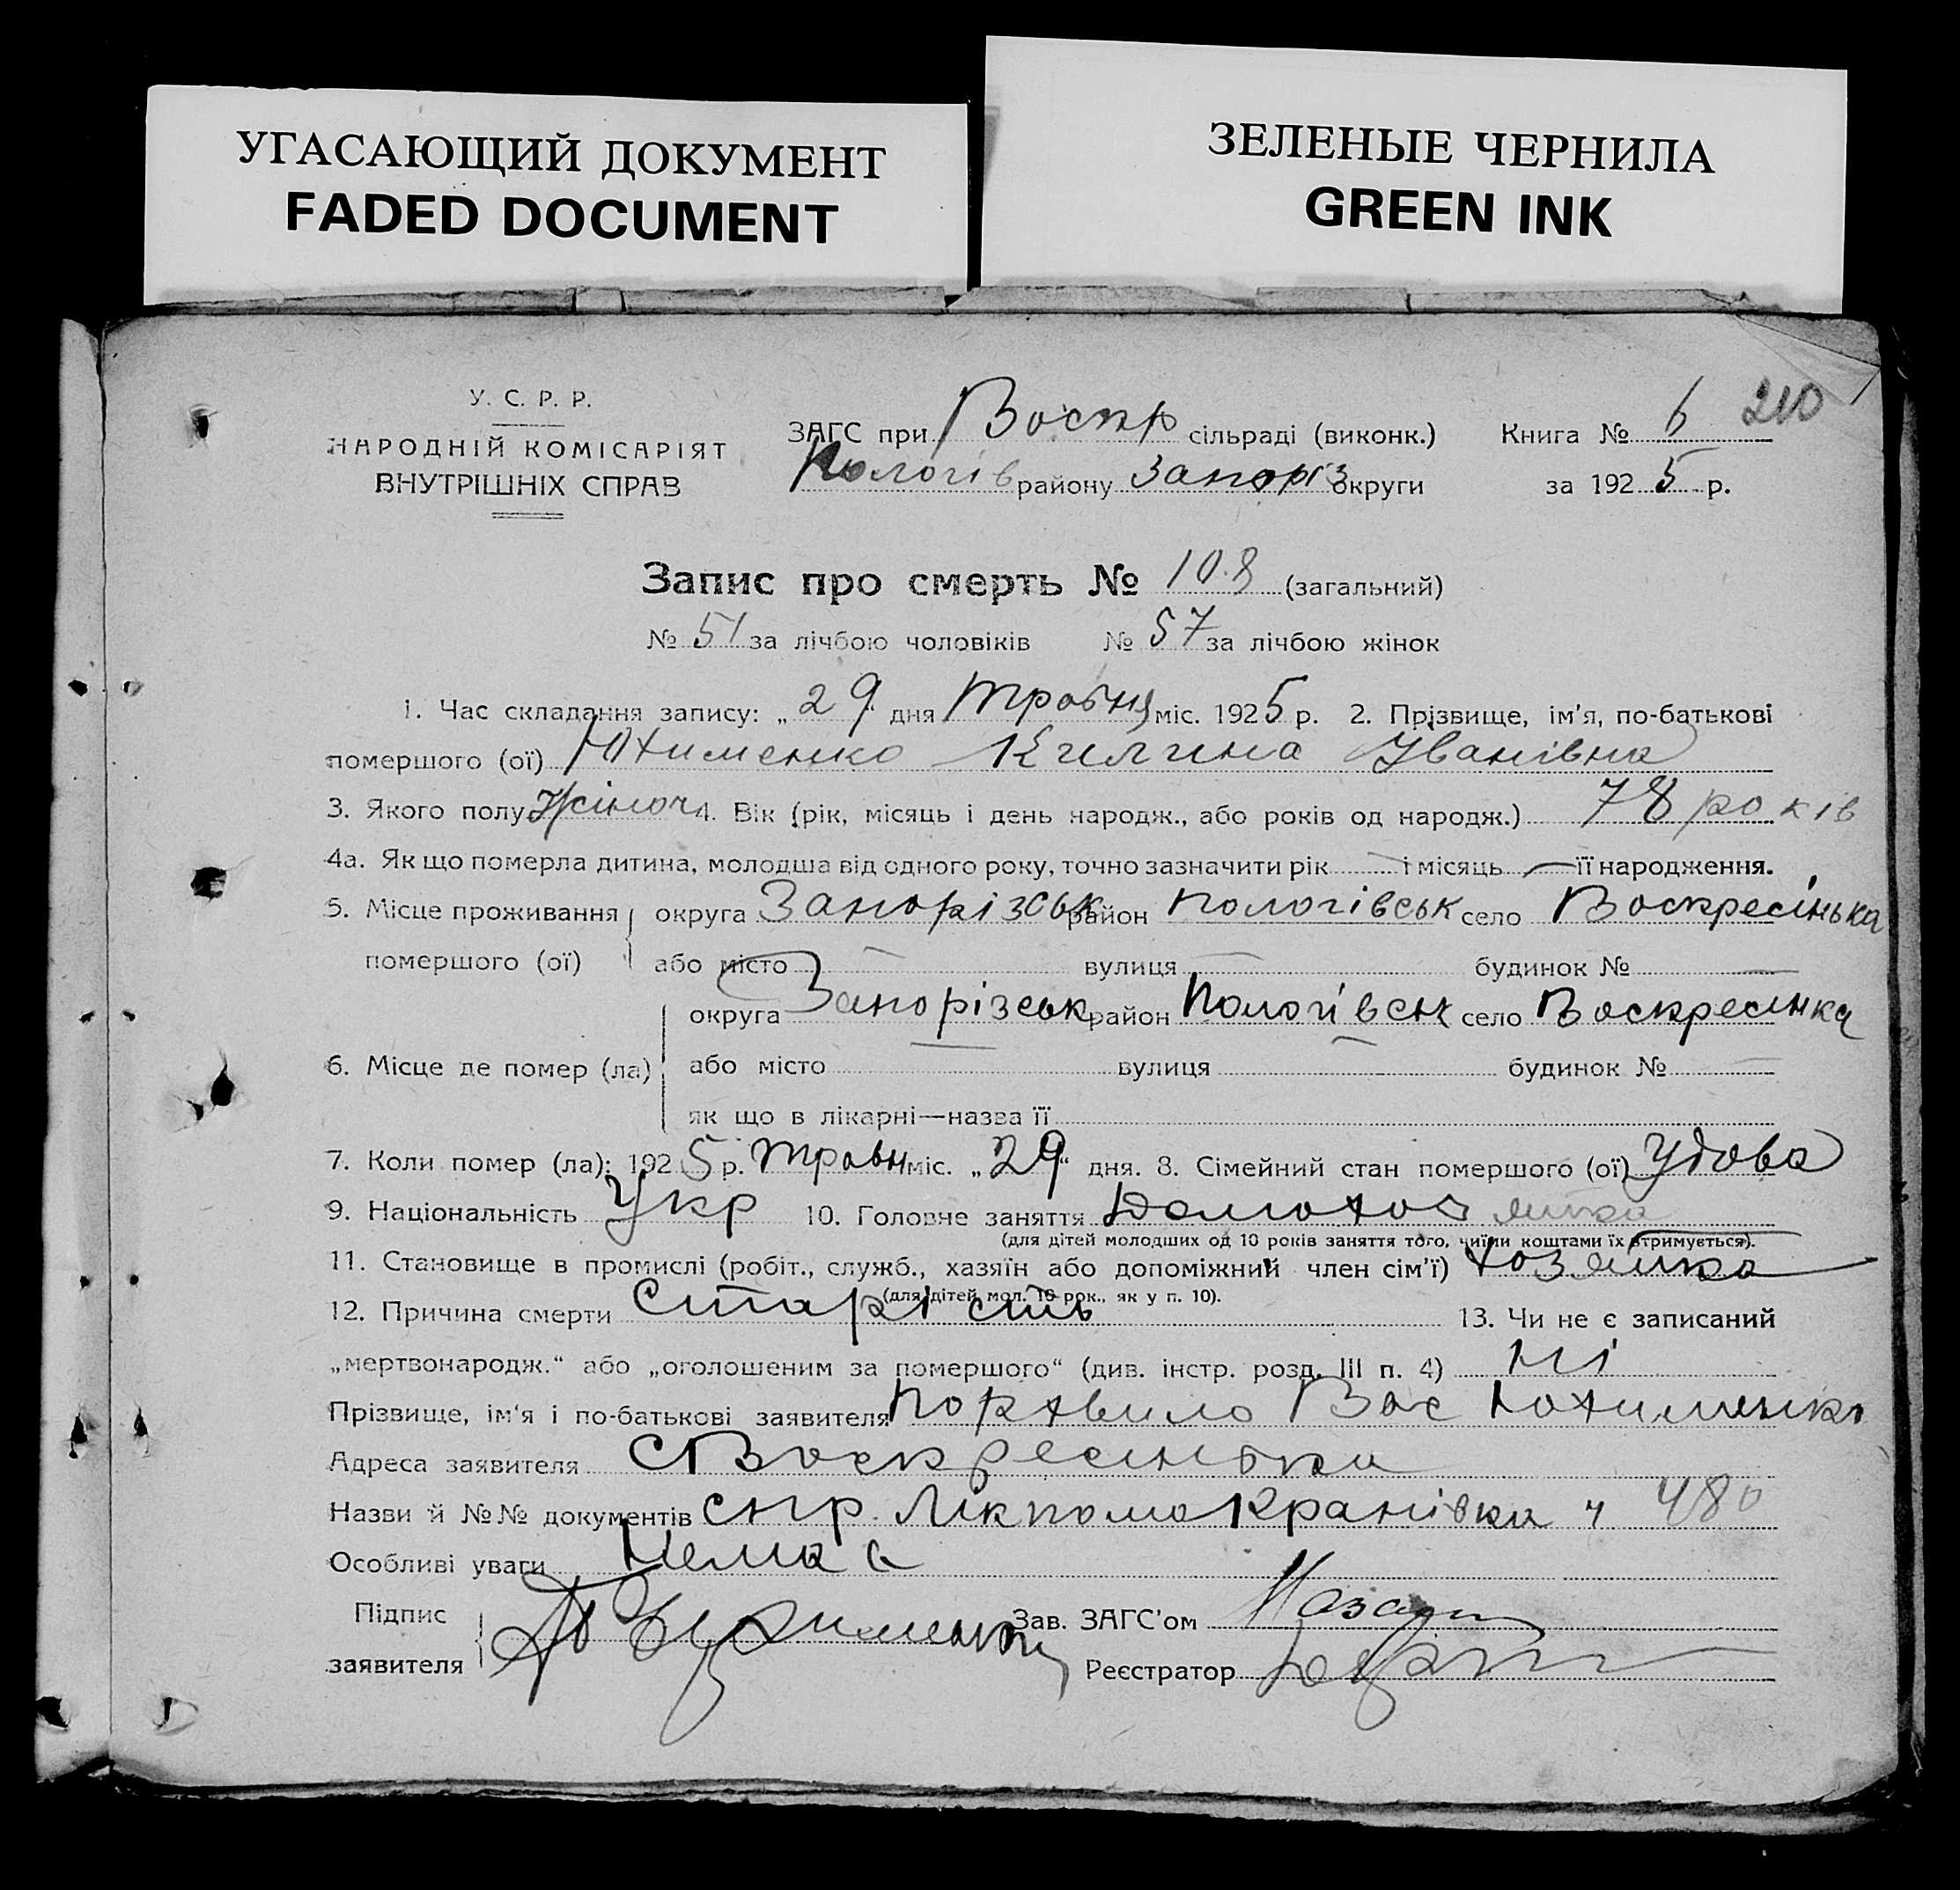 УГАСАЮЩИЙ ДОКУМЕНТ
FADED DOCUMENT
ЗЕЛЕНЫЕ ЧЕРНИЛА
GREEN INK
210
У. С. Р. Р.
НАРОДНІЙ КОМІСАРІЯТ
ВНУТРІШНІХ СПРАВ
ЗАГС при Воскр сільраді (виконк.) Книга № 6
Пологів району Запоріз округи за 1925 р.
Запис про смерть № 108 (загальний)
№ 51 за лічбою чоловіків № 57 за лічбою жінок
1. Час складання запису: „29 дня Травня міс. 1925 р. 2. Прізвище, ім'я, по-батькові
помершого (ої) Юхименко Килина Іванівна
3. Якого полу жіноч 4. Вік (рік, місяць і день народж., або років од народж.) 78 років
4а. Як що померла дитина, молодша від одного року, точно зазначити рік — і місяць — її народження.
5. Місце проживання помершого (ої) округа Запорізськ район Пологівськ село Воскресінька
або місто — вулиця — будинок № —
6. Місце де помер (ла) округа Запорізськ район Пологівськ село Воскресінка
або місто — вулиця — будинок № —
як що в лікарні—назва її
7. Коли помер (ла): 1925 р. Травн міс. „29“ дня. 8. Сімейний стан помершого (ої) Удова
9. Національність Укр 10. Головне заняття
(для дітей молодших од 10 років заняття того, чиїми коштами їх втримується).
11. Становище в промислі (робіт., служб., хазяїн або допоміжний член сім'ї) хозяйка
(для дітей мол. 10 рок., як у п. 10).
12. Причина смерти Старість 13. Чи не є записаний
„мертвонародж.“ або „оголошеним за помершого“ (див. інстр. розд. III п. 4) Ні
Прізвище, ім'я і по-батькові заявителя Порхвило Вас Юхименко
Адреса заявителя с Воскресінька
Назви й №№ документів спр. Лікпома Кранівка ч 480
Особливі уваги Немає
Підпис заявителя
Зав. ЗАГС'ом
Реєстратор